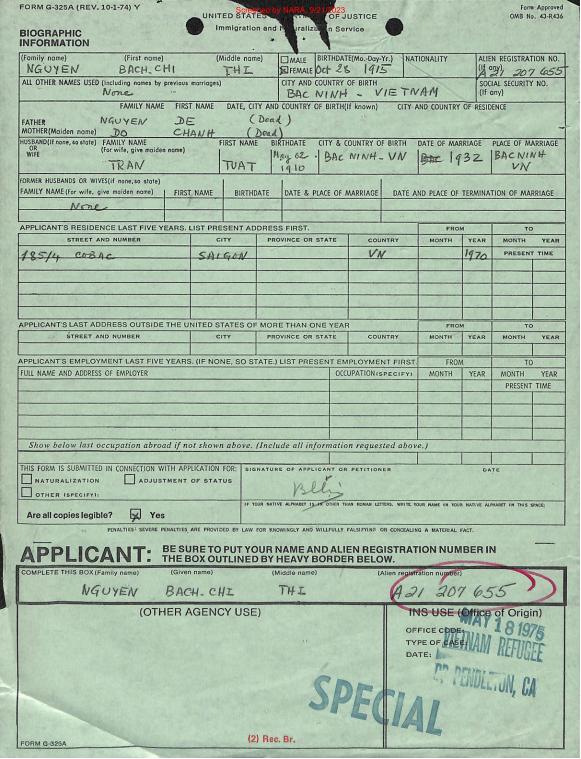 FORM G-325A (REV. 10-1-74) Y
Screened by NARA, 9/21/2023
Form Approved
OMB No. 43-R436
UNITED STATES DEPARTMENT OF JUSTICE
Immigration and Naturalization Service
BIOGRAPHIC
INFORMATION
(Family name) (First name) (Middle name) MALE FEMALE BIRTHDATE(Mo.-Day-Yr.) NATIONALITY ALIEN REGISTRATION NO. (If any)
NGUYEN BACH.CHI THI Oct 28 1915 A21 207 655
ALL OTHER NAMES USED (Including names by previous marriages) CITY AND COUNTRY OF BIRTH SOCIAL SECURITY NO. (If any)
None BAC NINH - VIETNAM
FAMILY NAME FIRST NAME DATE, CITY AND COUNTRY OF BIRTH(If known) CITY AND COUNTRY OF RESIDENCE
FATHER NGUYEN DE (Dead)
MOTHER(Maiden name) DO CHANH (Dead)
HUSBAND(If none, so state) OR WIFE FAMILY NAME (For wife, give maiden name) FIRST NAME BIRTHDATE CITY & COUNTRY OF BIRTH DATE OF MARRIAGE PLACE OF MARRIAGE
TRAN TUAT May 02 1910 BAC NINH-VN 1932 BACNINH VN
FORMER HUSBANDS OR WIVES(If none, so state)
FAMILY NAME (For wife, give maiden name) FIRST NAME BIRTHDATE DATE & PLACE OF MARRIAGE DATE AND PLACE OF TERMINATION OF MARRIAGE
None
APPLICANT'S RESIDENCE LAST FIVE YEARS. LIST PRESENT ADDRESS FIRST. FROM TO
STREET AND NUMBER CITY PROVINCE OR STATE COUNTRY MONTH YEAR MONTH YEAR
185/4 COBAC SAIGON VN 1970 PRESENT TIME
APPLICANT'S LAST ADDRESS OUTSIDE THE UNITED STATES OF MORE THAN ONE YEAR FROM TO
STREET AND NUMBER CITY PROVINCE OR STATE COUNTRY MONTH YEAR MONTH YEAR
APPLICANT'S EMPLOYMENT LAST FIVE YEARS. (IF NONE, SO STATE.) LIST PRESENT EMPLOYMENT FIRST. FROM TO
FULL NAME AND ADDRESS OF EMPLOYER OCCUPATION(SPECIFY) MONTH YEAR MONTH YEAR
PRESENT TIME
Show below last occupation abroad if not shown above. (Include all information requested above.)
THIS FORM IS SUBMITTED IN CONNECTION WITH APPLICATION FOR: SIGNATURE OF APPLICANT OR PETITIONER DATE
NATURALIZATION ADJUSTMENT OF STATUS
OTHER (SPECIFY):
IF YOUR NATIVE ALPHABET IS IN OTHER THAN ROMAN LETTERS, WRITE YOUR NAME IN YOUR NATIVE ALPHABET IN THIS SPACE:
Are all copies legible? Yes
PENALTIES: SEVERE PENALTIES ARE PROVIDED BY LAW FOR KNOWINGLY AND WILLFULLY FALSIFYING OR CONCEALING A MATERIAL FACT.
APPLICANT: BE SURE TO PUT YOUR NAME AND ALIEN REGISTRATION NUMBER IN
THE BOX OUTLINED BY HEAVY BORDER BELOW.
COMPLETE THIS BOX (Family name) (Given name) (Middle name) (Alien registration number)
NGUYEN BACH.CHI THI A21 207 655
(OTHER AGENCY USE) INS USE (Office of Origin)
OFFICE CODE:
TYPE OF CASE:
DATE:
MAY 18 1975
VIETNAM REFUGEE
CP PENDLETON, CA
SPECIAL
FORM G-325A
(2) Rec. Br.